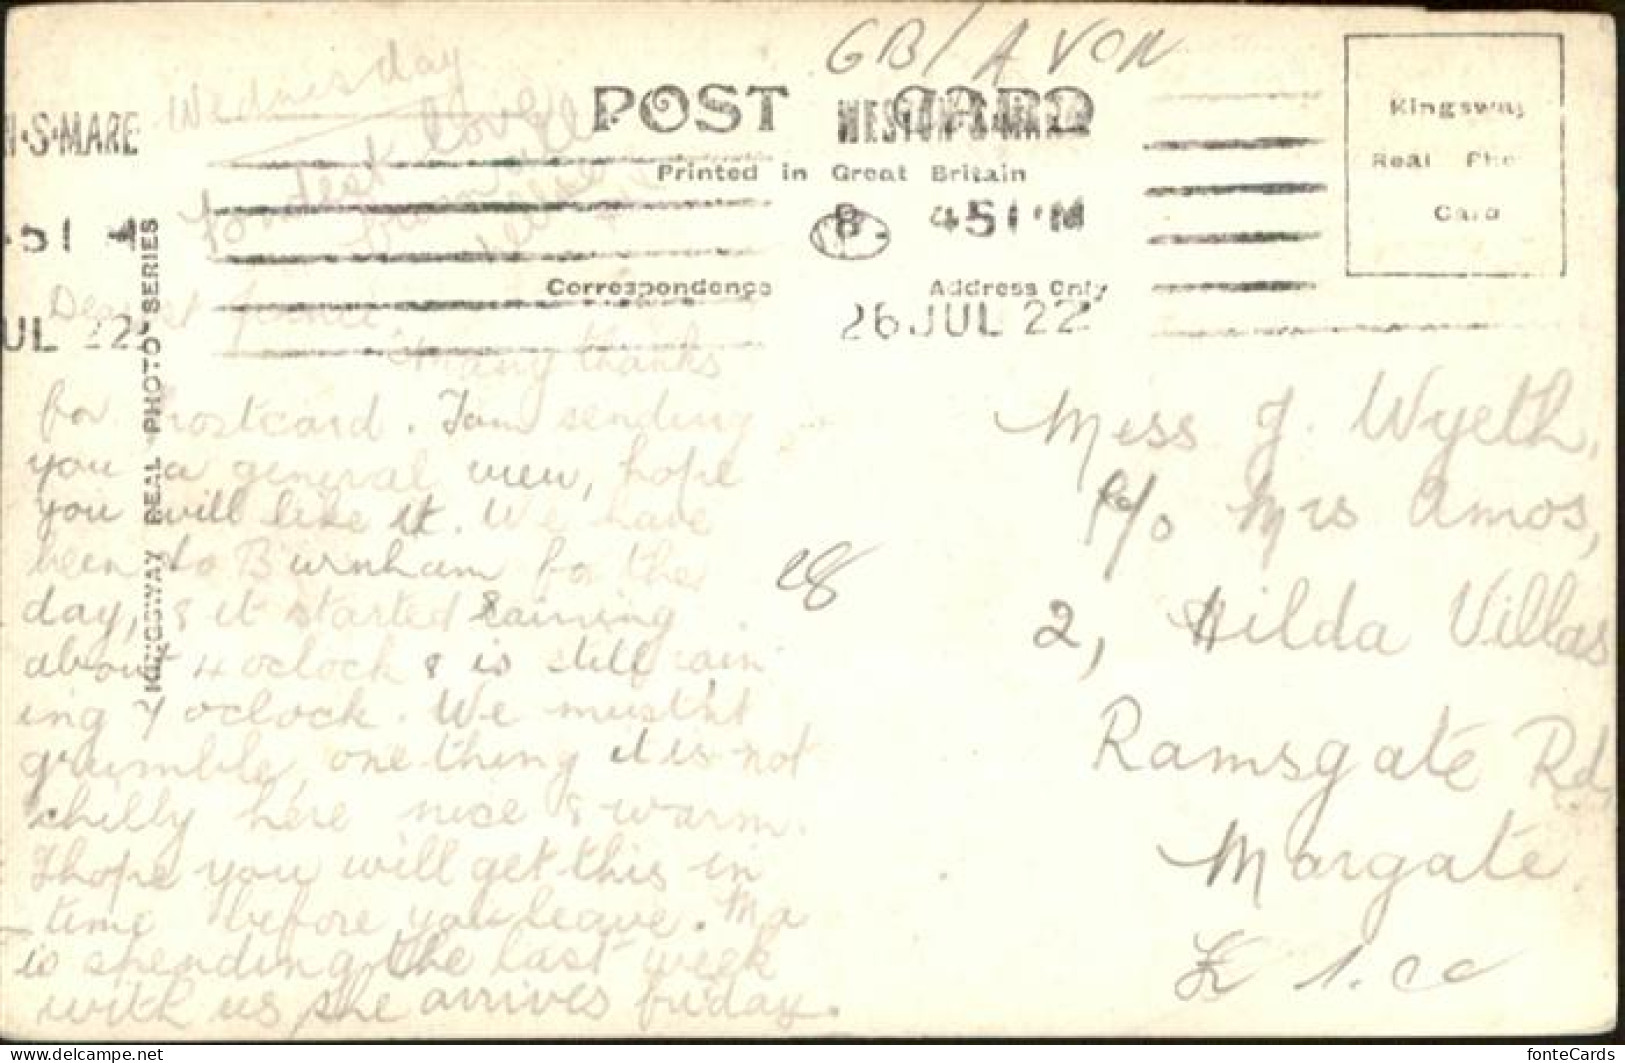 GB/AVON
Wednesday
POST CARD
N·S·MARE
WESTON-S-MARE
Fondest love
from all
Printed in Great Britain
Kingsway
Real Pho
Card
·51
4 51 PM
Correspondence
Address Only
JUL 22
26 JUL 22
KINGSWAY REAL PHOTO SERIES
Dearest
Many thanks
for postcard. I am sending
you a general view, hope
you will like it. We have
been to Burnham for the
day, & it started raining
about 4 oclock & is still rain
ing 7 oclock. We mustn't
grumble, one thing it is not
chilly here nice & warm.
I hope you will get this in
time before you leave. Ma
is spending the last week
with us, she arrives friday.
28
Miss J. Wyeth,
c/o Mrs Amos,
2, Hilda Villas
Ramsgate Rd,
Margate.
fonteCards
www.delcampe.net